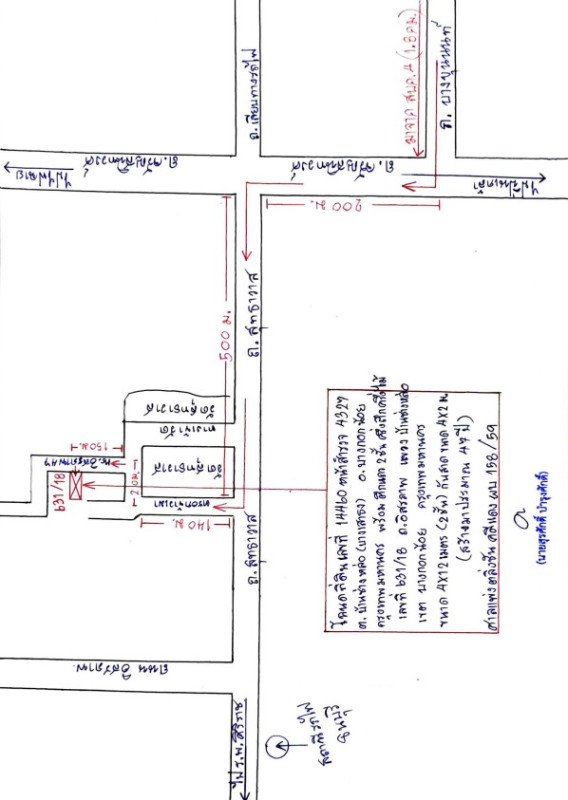 ถ. เลียบทางรถไฟ
มาจาก สบค.4 (1.8 กม.)
ถ. บางขุนนนท์
ไปไฟฉาย
ถ. จรัญสนิทวงศ์
ถ. จรัญสนิทวงศ์
ไปปิ่นเกล้า
200 ม.
500 ม.
ถ. สุทธาวาส
วัดสุทธาวาส
ทางเข้าวัด
วัดสุทธาวาส
150 ม.
ซ. อิสรภาพ 47
20 ม.
631/18
140 ม.
ถ. สุทธาวาส
โฉนดที่ดินเลขที่ 14460 หน้าสำรวจ 4329
ต. บ้านช่างหล่อ (บางเสาธง) อ. บางกอกน้อย
กรุงเทพมหานคร พร้อม ตึกแถว 2 ชั้น
เลขที่ 631/18 ถ. อิสรภาพ แขวง บ้านช่างหล่อ
เขต บางกอกน้อย กรุงเทพมหานคร
ขนาด 4X12 เมตร (2 ชั้น) กันสาด ขนาด 4X2 ม.
(สร้างมาประมาณ 47 ปี)
ศาลแพ่งตลิ่งชัน คดีแดง ผบ 158/59
(นายสุรศักดิ์ บำรุงศักดิ์)
ถนน อิสรภาพ
ไป ร.พ. ศิริราช
สถานีรถไฟ
ธนบุรี